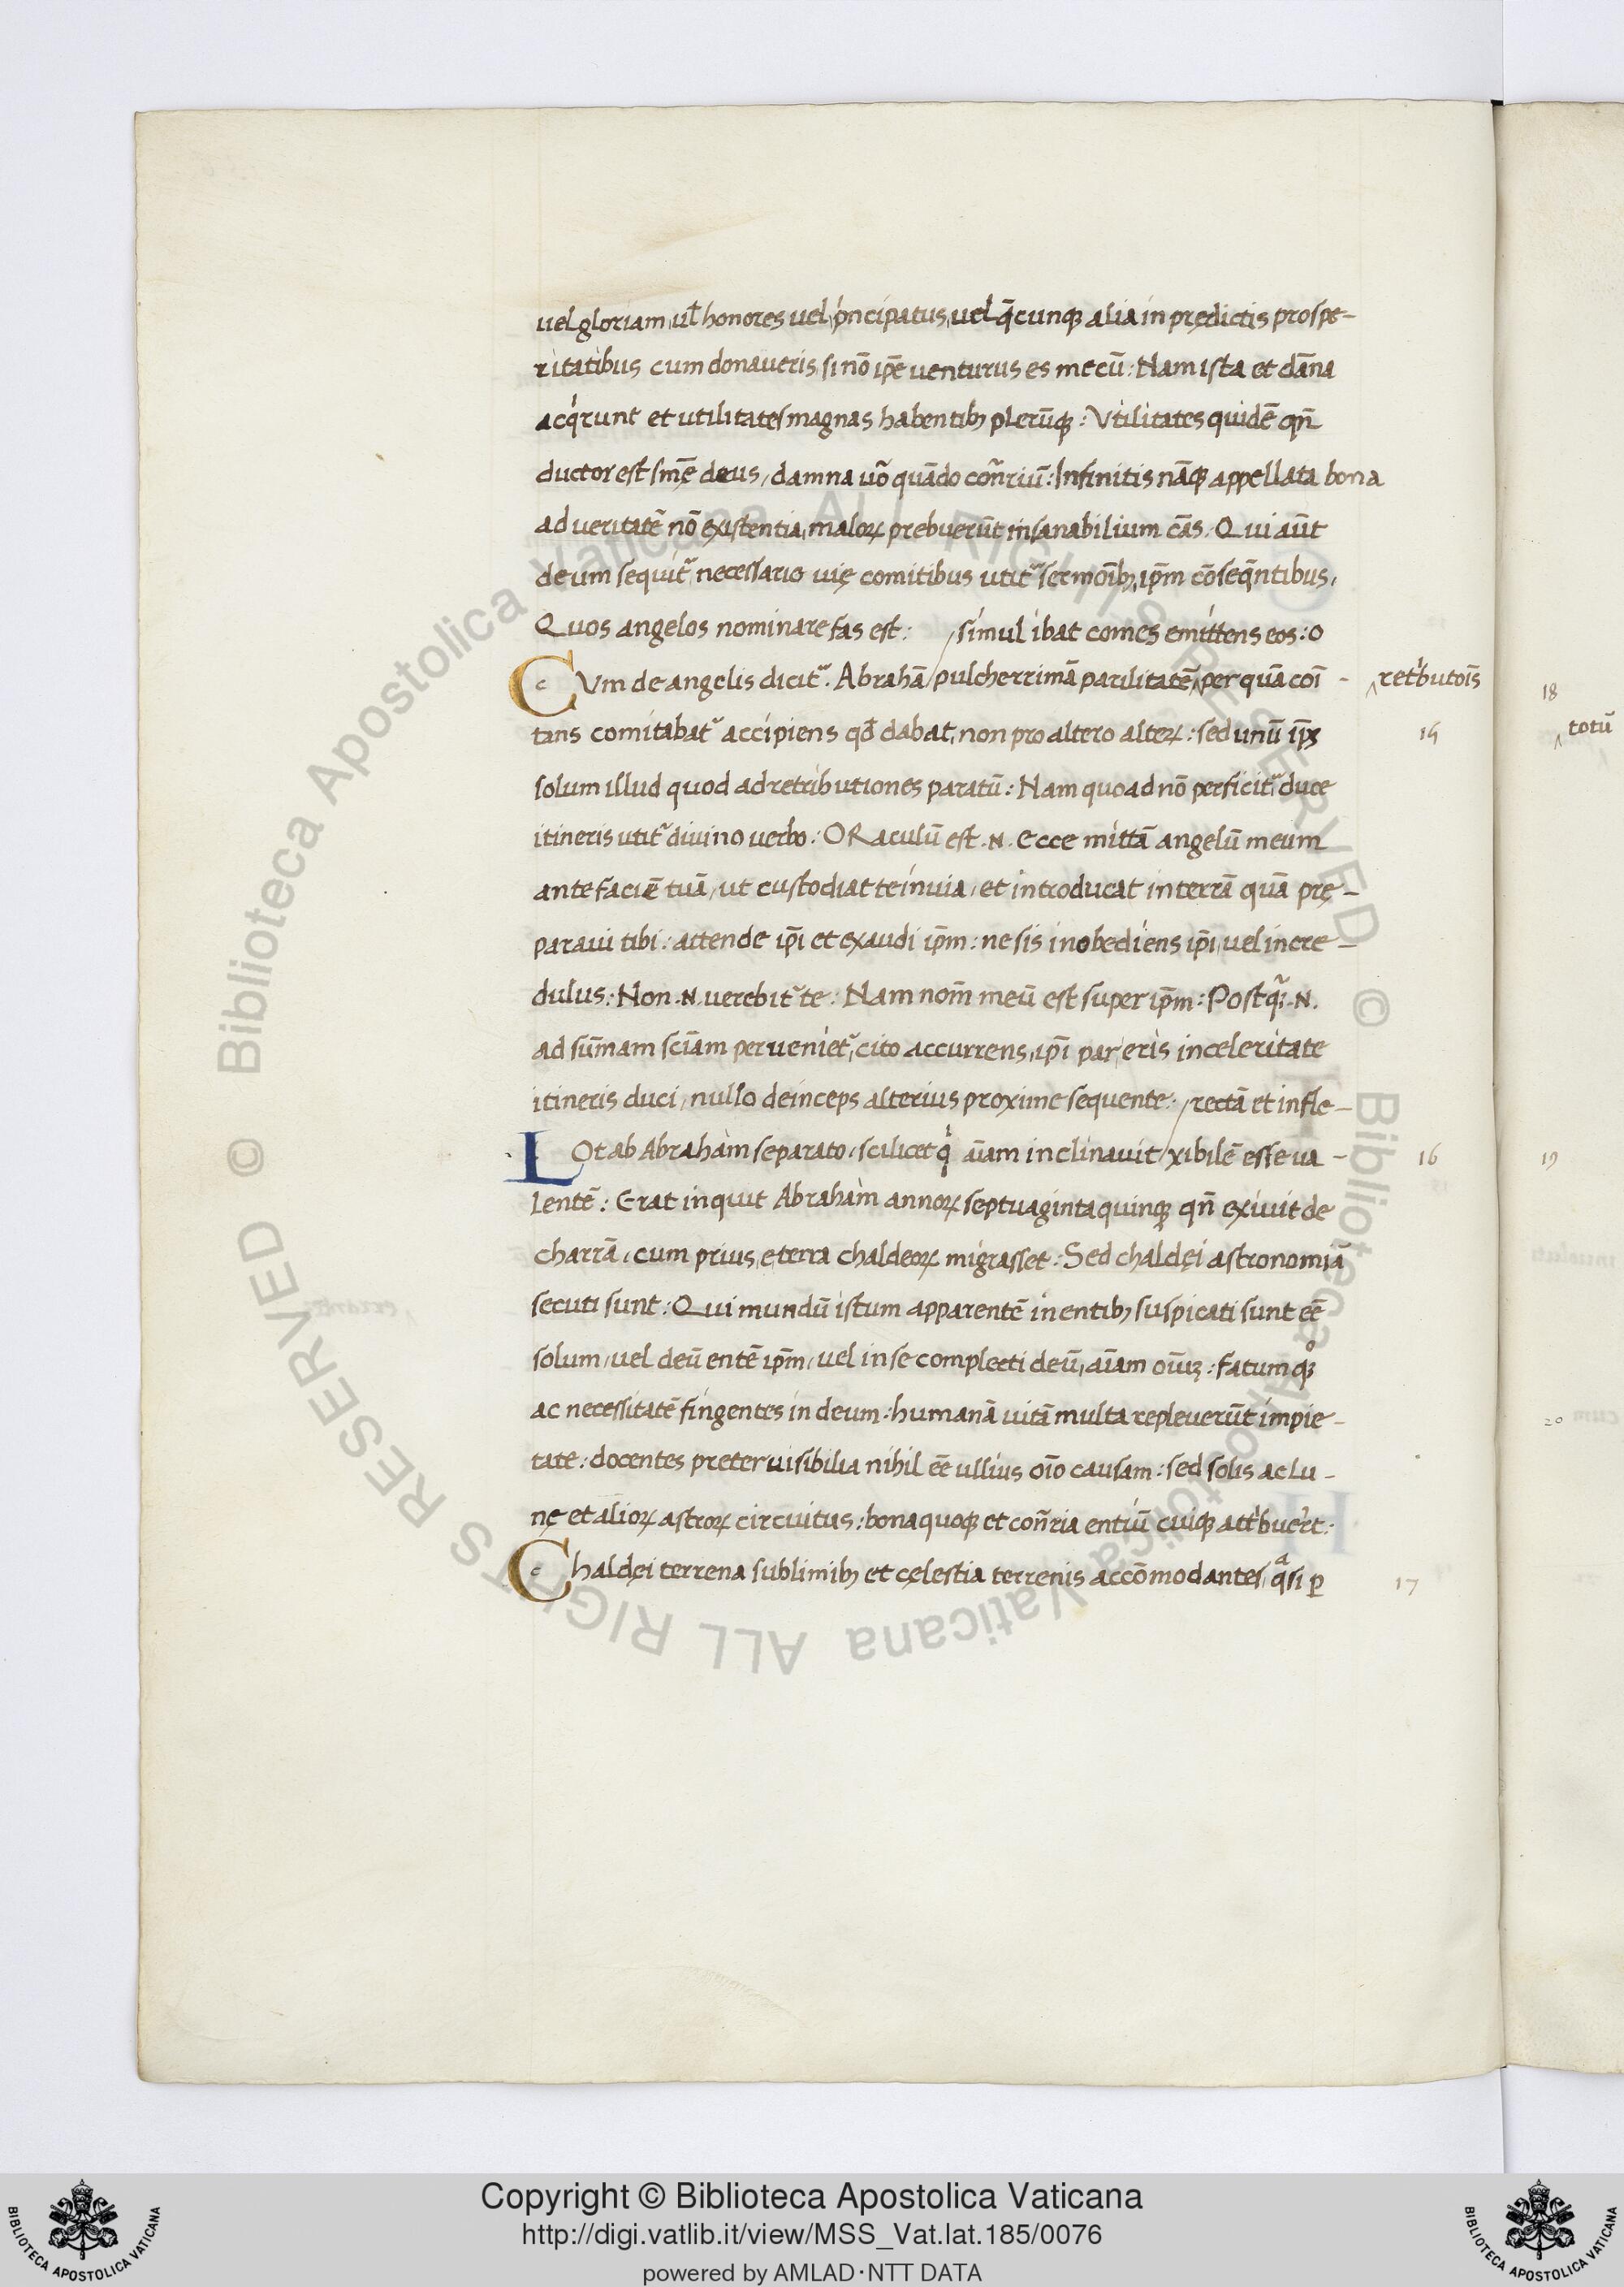 uel gloriam, ul̄ honores uel, p̓ncipatus, uel q̄cunqꝫ alia in prędictis prospe-
ritatibus cum donaueris, si nō ip̄e uenturus es mecū: Nam ista et dāna
acq̓runt et utilitates magnas habentibꝫ plerūqꝫ: Vtilitates quidē qn̄
ductor est sm̄ę deus, damna uō quādo con̄riū: Infinitis nāqꝫ appellata bona
ad veritatē nō existentia, maloꝝ prebuerūt insanabilium cās. Qui aūt
deum sequit᷑ necessario uię comitibus utit᷑ sermoībꝫ, ip̄m cōseq̄ntibus,
Quos angelos nominare fas est: / simul ibat comes emittens eos: o
CVm de angelis dicit᷑. Abrahā / pulcherrimā parilitatē ‸ per quā coī -
‸ ret̓butoīs
tans comitabat᷑ accipiens qd̄ dabat, non pro altero alteꝝ: sed unū ip̄ꝫ
15
solum illud quod ad retributiones paratū: Nam quoad nō perficit᷑ duce
itineris utit᷑ diuino uerbo: ORaculū est .N. Ecce mittā angelū meum
ante faciē tuā, ut custodiat te in uia, et introducat in terrā quā prę-
paraui tibi: attende ip̄i et exaudi ip̄m: ne sis inobediens ip̄i, uel incre-
dulus: Non .N. uerebit᷑ te: Nam nom̄ meū est super ip̄m: Postqꝫ .N.
ad sum̄am sciām perueniet᷑, cito accurrens, ip̄i par, eris in celeritate
itineris duci, nullo deinceps alterius proxime sequente: / rectā et infle-
LOt ab Abraham separato, scilicet q̓ aīam inclinauit / xibilē esse ua -
16
lentē: Erat inquit Abraham annoꝝ septuaginta quinqꝫ qn̄ exiuit de
charrā, cum prius, e terra chaldeoꝝ migrasset: Sed chaldęi astronomiā
secuti sunt: Qui mundū istum apparentē in entibꝫ suspicati sunt eē
solum, uel deū entē ip̄m, uel in se complecti deū, aīam oīuꝫ: fatum qꝫ
ac necessitatē fingentes in deum: humanā uitā multa repleuerūt impie-
tate: docentes preter uisibilia nihil eē ullius oīo causam: sed solis ac lu -
nę et alioꝝ astroꝝ circuitus: bona quoqꝫ et con̄ria entiū cuiqꝫ att̓buer̄t:
Chaldęi terrena sublimibꝫ et cęlestia terrenis accōmodantes, qᵃsi ꝑ
17
18
‸ totū
19
20
Copyright © Biblioteca Apostolica Vaticana
http://digi.vatlib.it/view/MSS_Vat.lat.185/0076
powered by AMLAD·NTT DATA
BIBLIOTECA APOSTOLICA VATICANA
BIBLIOTECA APOSTOLICA VATICANA
© Biblioteca Apostolica Vaticana ALL RIGHTS RESERVED © Biblioteca Apostolica Vaticana ALL RIGHTS RESERVED